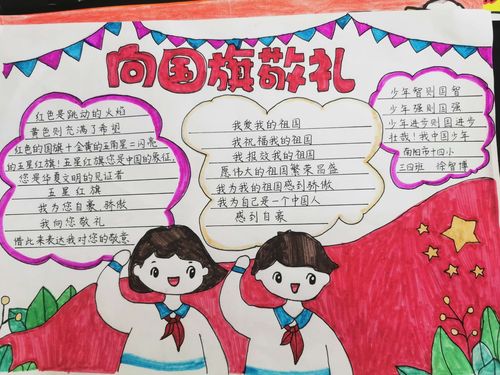 向国旗敬礼
红色是跳动的火焰
黄色则充满了希望
红色的国旗十金黄的五角星=闪亮
的五星红旗!五星红旗您是中国的象征,
您是华夏文明的见证者
五星红旗
我为您自豪、骄傲
我向您敬礼
借此来表达我对您的敬意
我爱我的祖国
我祝福我的祖国
我报效我的祖国
愿伟大的祖国繁荣昌盛
我为我的祖国感到骄傲
我为自己是一个中国人
感到自豪
少年智则国智
少年强则国强
少年进步则国进步
壮哉!我中国少年
南阳市十四小
三四班 徐智博